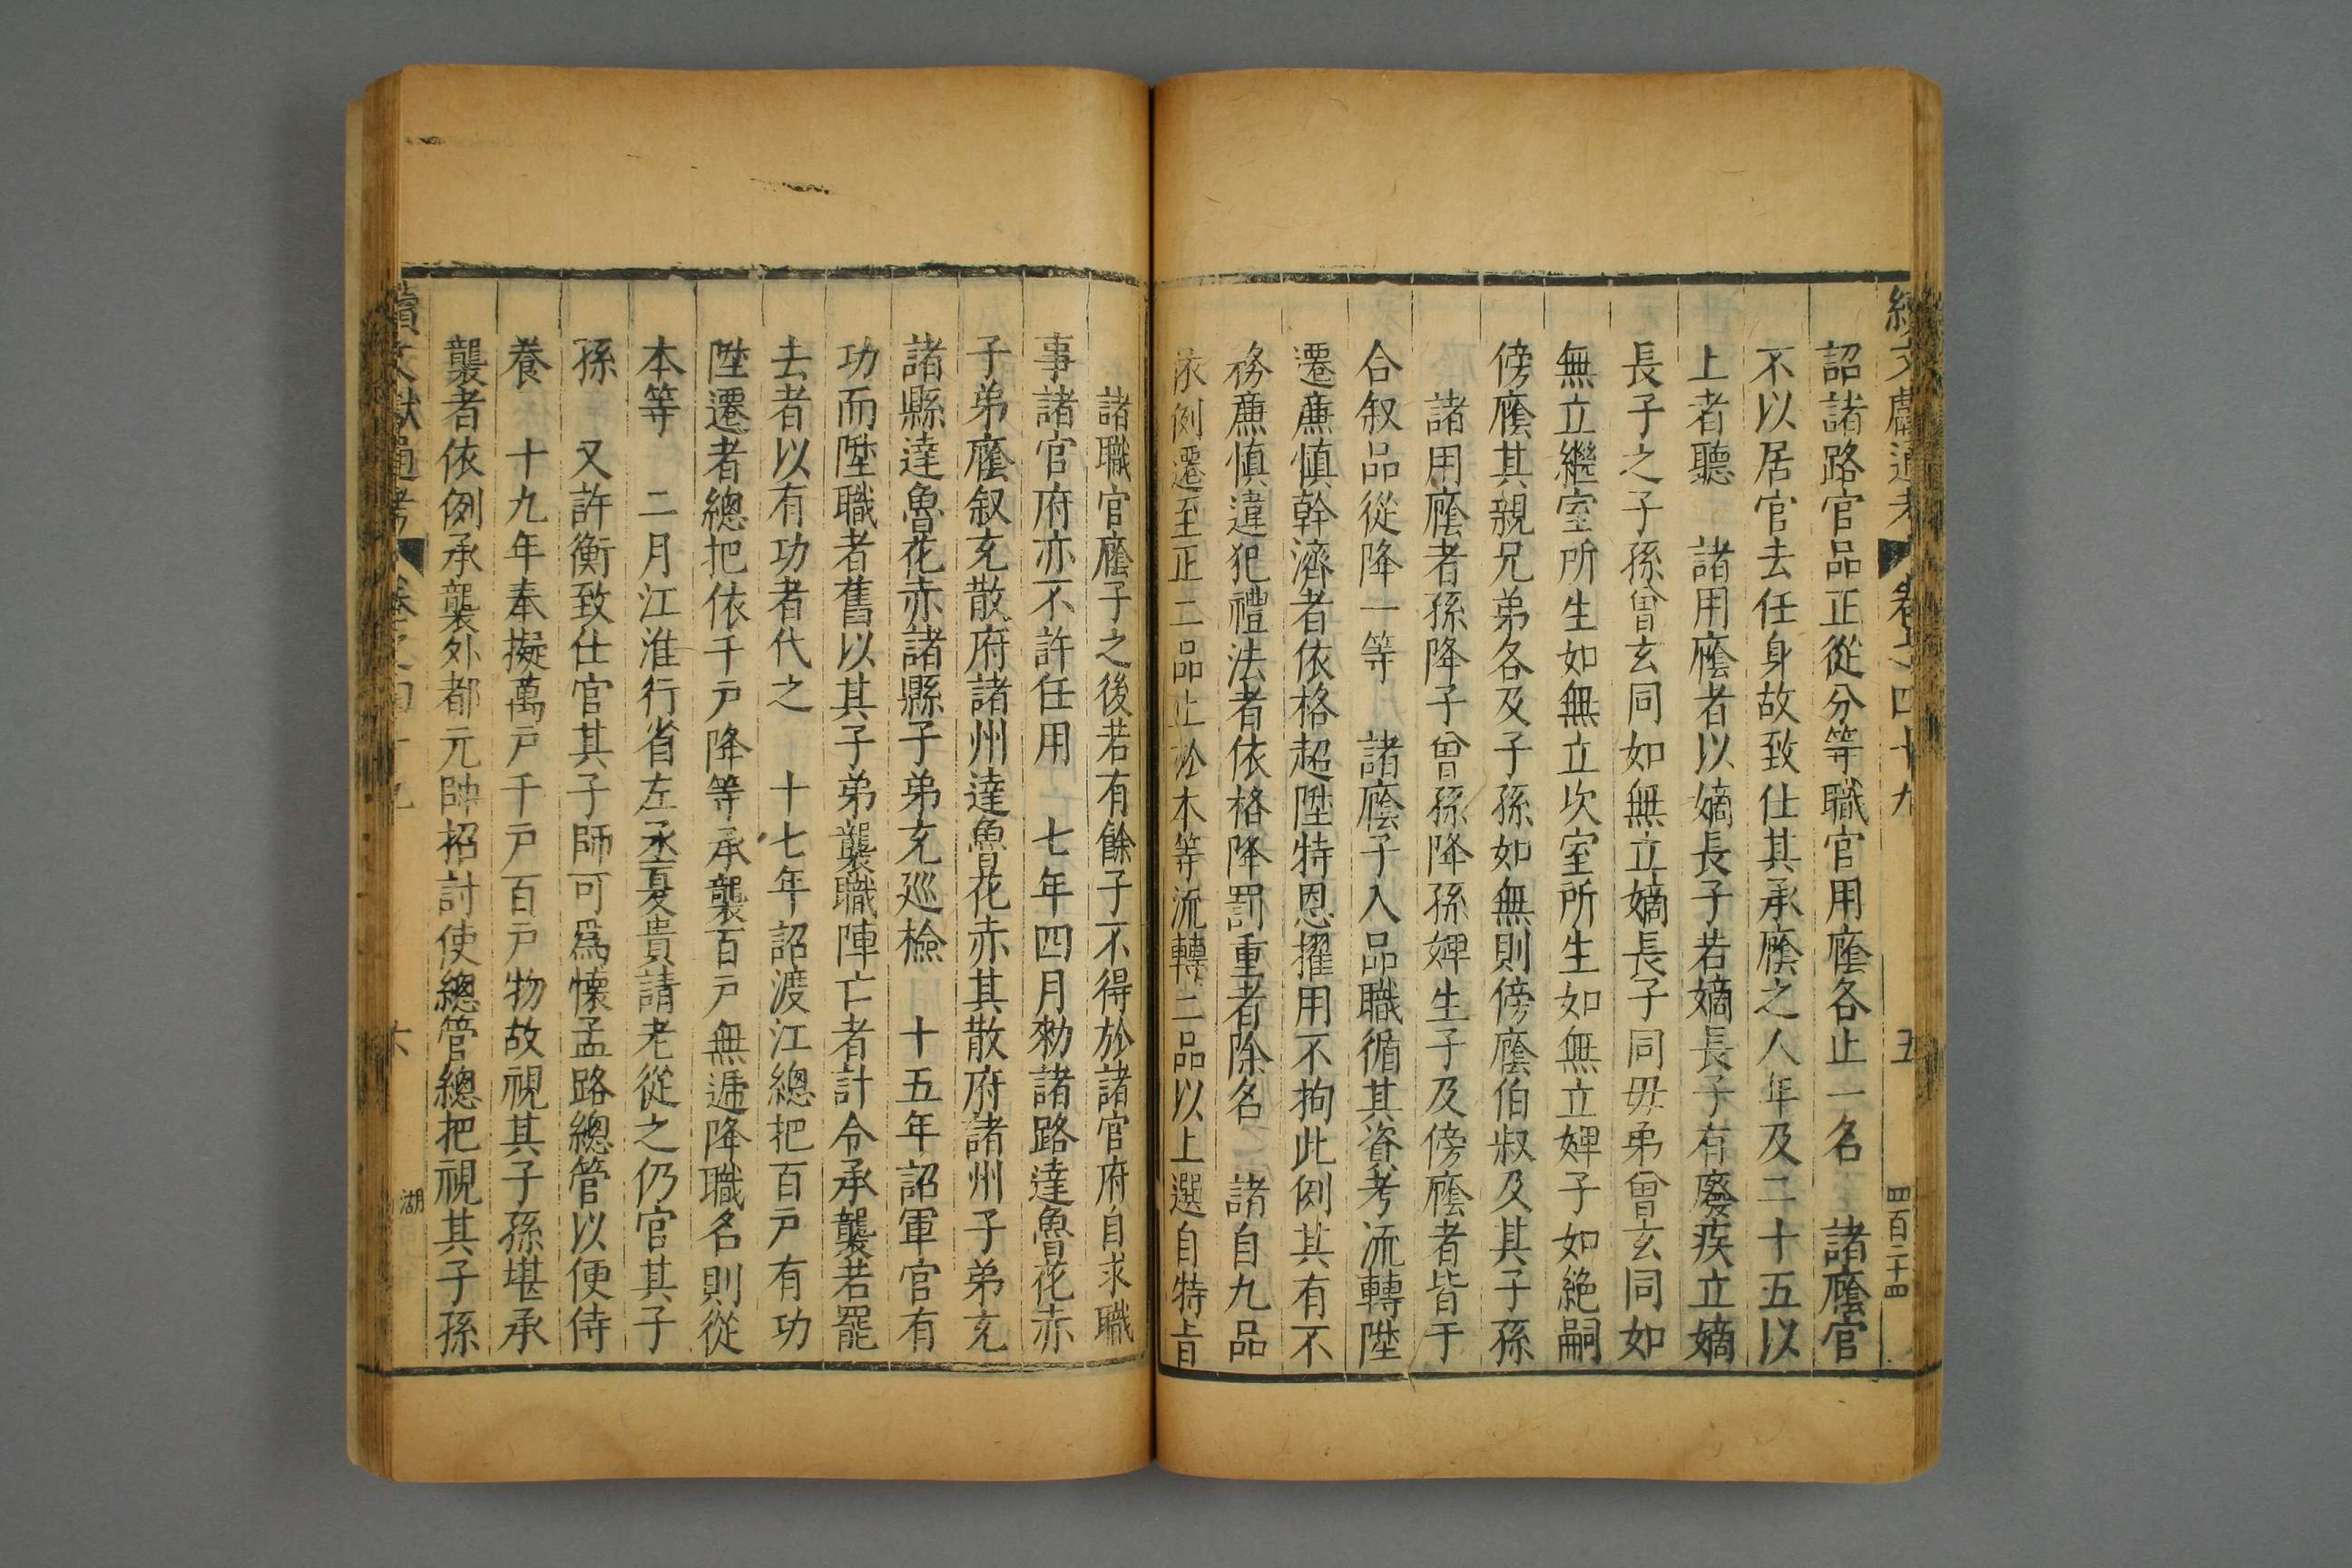 續文獻通考 卷之四十九 五 四百二十四
詔諸路官品正從分等職官用廕各止一名 諸廕官
不以居官去任身故致仕其承廕之人年及二十五以
上者聽 諸用廕者以嫡長子若嫡長子有廢疾立嫡
長子之子孫曾玄同如無立嫡長子同毋弟曾玄同如
無立繼室所生如無立次室所生如無立婢子如絶嗣
傍廕其親兄弟各及子孫如無則傍廕伯叔及其子孫
諸用廕者孫降子曾孫降孫婢生子及傍廕者皆于
合叙品從降一等 諸廕子入品職循其資考流轉陞
遷亷慎幹濟者依格超陞特恩擢用不拘此例其有不
務亷慎違犯禮法者依格降罰重者除名 諸自九品
依例遷至正三品止於本等流轉二品以上選自特旨
諸職官廕子之後若有餘子不得於諸官府自求職
事諸官府亦不許任用 七年四月勑諸路達魯花赤
子弟廕叙充散府諸州達魯花赤其散府諸州子弟充
諸縣達魯花赤諸縣子弟充廵檢 十五年詔軍官有
功而陞職者舊以其子弟襲職陣亡者計令承襲若罷
去者以有功者代之 十七年詔渡江總把百戸有功
陞遷者總把依千戸降等承襲百戸無遞降職名則從
本等 二月江淮行省左丞夏貴請老從之仍官其子
孫 又許衡致仕官其子師可爲懷孟路總管以便侍
養 十九年奉擬萬戸千戸百戸物故視其子孫堪承
襲者依例承襲外都元帥招討使總管總把視其子孫
續文獻通考 卷之四十九 六 湖